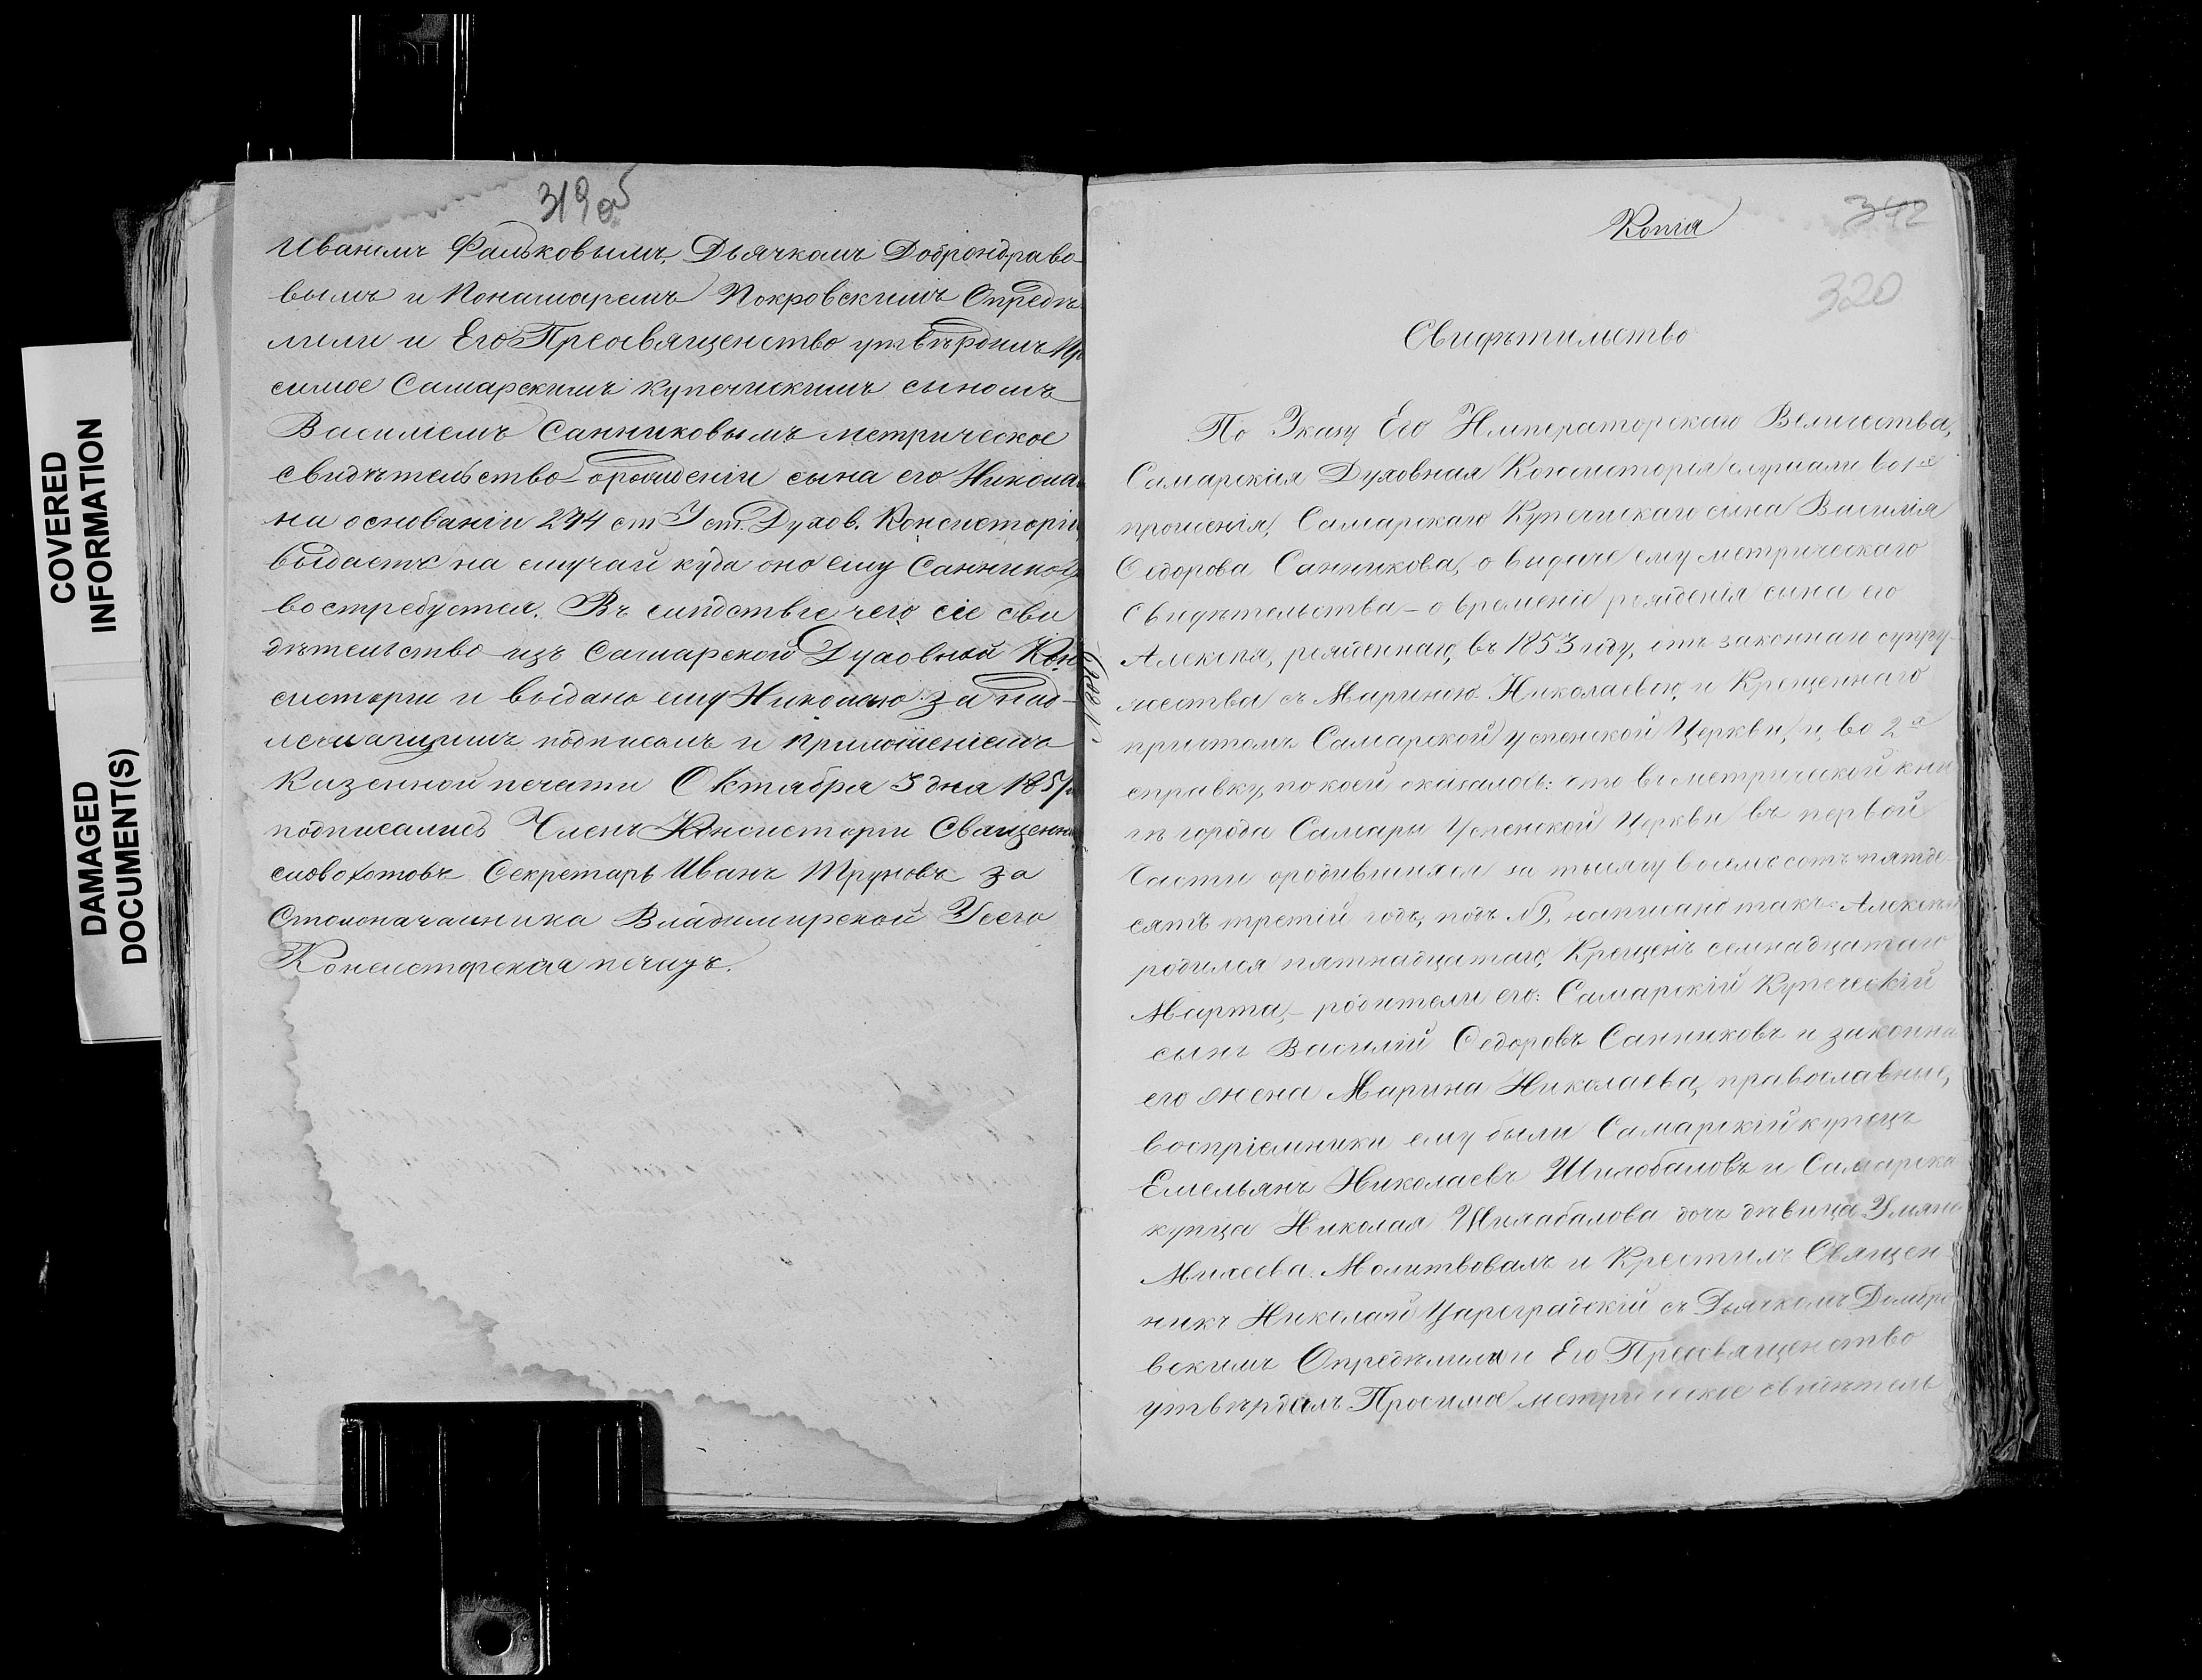 COVERED
INFORMATION
DAMAGED
DOCUMENT(S)
319 об
Иваномъ Фальковымъ, Дьячкомъ Доброндраво-
вымъ и Пономаремъ Покровскимъ Опредѣ
лили и Его Преосвященство утвѣрдилъ Пр
симое Самарскимъ купеческимъ сыномъ
Василіемъ Санниковымъ метрическое
свидѣтельство орождении сына его Никола
на основаніи 274 ст Уст. Духов. Консисторіи
выдаетъ на случай куда оно ему Саннико
востребуется. Въ слѣдствіе чего сіе сви
дѣтельство изъ Самарской Духовной Кон
систоріи и выдано ему Николаю за над-
лежащимъ подписомъ и приложеніемъ
Казенной печати Октября 3 дня 1857
подписались Членъ Консисторіи Священн
словохотовъ Секретарь Иванъ Труновъ за
Столоначальника Владимирской Уеего
Консисторская печать.
Копія
342
320
Свидѣтельство
По Указу Его Императорскаго Величества,
Самарская Духовная Консисторія слушали во 1-х
прошенія, Самарскаго Купеческаго сына Василія
Ѳедорова Санникова, о выдаче ему метрическаго
Свидѣтельства – о времени рожденія сына его
Алексѣя, рожденнаго, въ 1853 году, отъ законнаго супру-
жества съ Мариною Николаевою, и Крещеннаго
притомъ Самарской успенской Церкви, и, во 2-х
справку, по коей оказалось: что въ метрической кни
гѣ города Самары Успенской Церкви въ первой
Части ородившихся за тысячу восемьсотъ пятьде-
сятъ третій годъ, подъ №, написано такъ: Алексѣй
родился пятнадцатаго, Крещенъ семнадцатаго
Марта, – родители его: Самарскій Купеческій
сынъ Василій Ѳедоровъ Санниковъ и законна
его жена Марина Николаева, православные,
воспріемники ему были Самарскій купецъ
Емельянъ Николаевъ Шихобаловъ и Самарска
купца Николая Шихабалова дочь дѣвица
Михеева. Молитвовалъ и Крестилъ Священ-
никъ Николай Цареградскій съ Дьячкомъ Домбро
вскимъ Опредѣлили Его Преосвященство
утвѣрдилъ Просимое метрическое свидѣтель